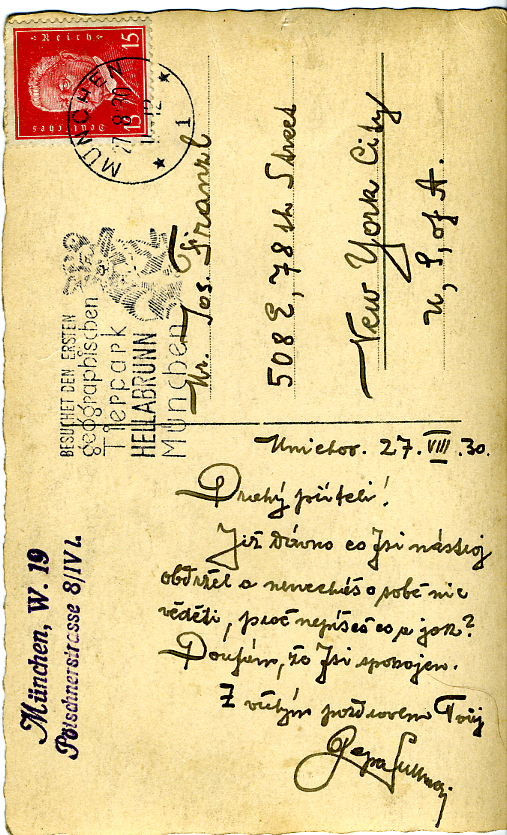 Deutsches Reich
15 15
MÜNCHEN
27.8.30
1
BESUCHET DEN ERSTEN
geographischen
Tierpark
HELLABRUNN
München
Mr. Jos. Franzl
508 E, 78 th Street
New York City
U, S, of A.
27. VIII .30.
Drahý příteli!
Již dávno co Jsi
obdržel a nenecháš o sobě nic
věděti, proč nepíšeš co a jak?
Doufám, že Jsi spokojen.
Z vřelým pozdravem Tvůj
Pepa
München, W. 19
Pötschnerstrasse 8/IV l.